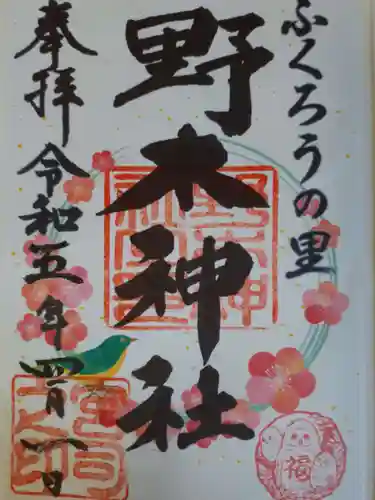 ふくろうの里
野木神社
奉拝
令和五年四月一日
福